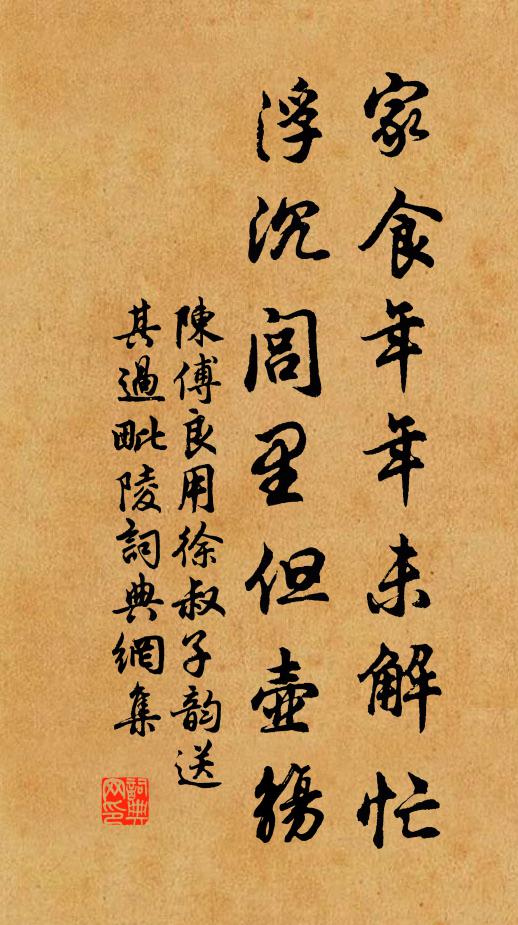 家食年年未解忙
浮沉閭里但壺觴
陳傅良用徐叔子韵送
其過毗陵詞典網集
詞典网印